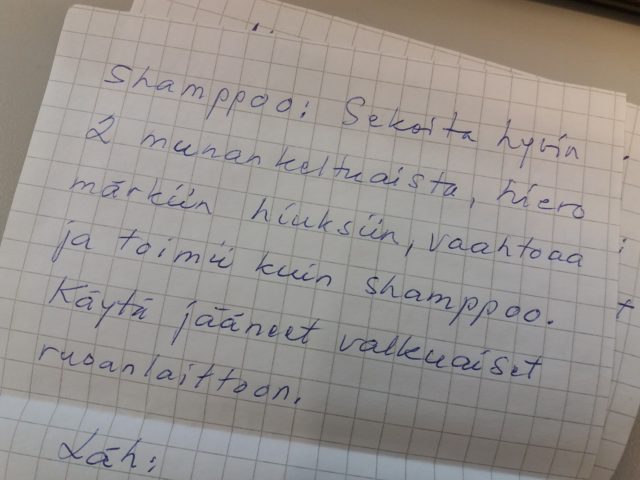 Shamppoo: Sekoita hyvin
2 munankeltuaista, hiero
märkiin hiuksiin, vaahtoaa
ja toimii kuin shamppoo.
Käytä jääneet valkuaiset
ruoanlaittoon.
Läh: